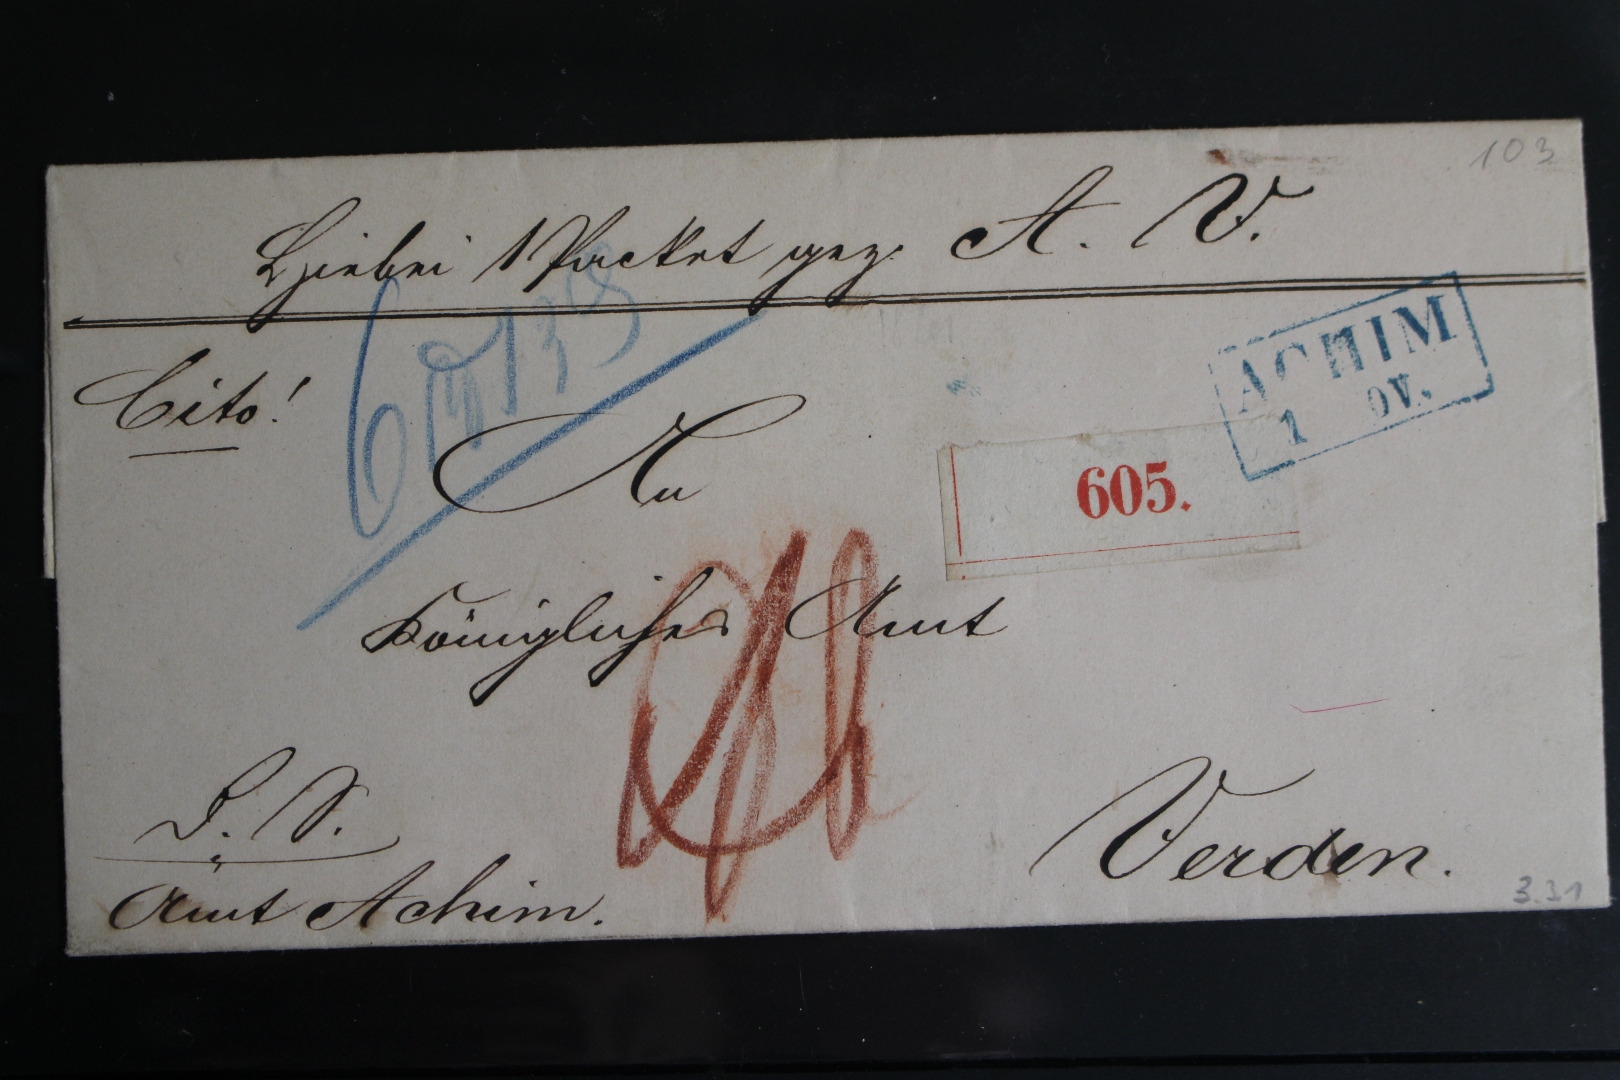 103
Hiebei 1 Packet gez. A. V.
Cito!
ACHIM
1 OV.
605.
An
Königliches Amt
Verden.
D. S.
Amt Achim.
3.31